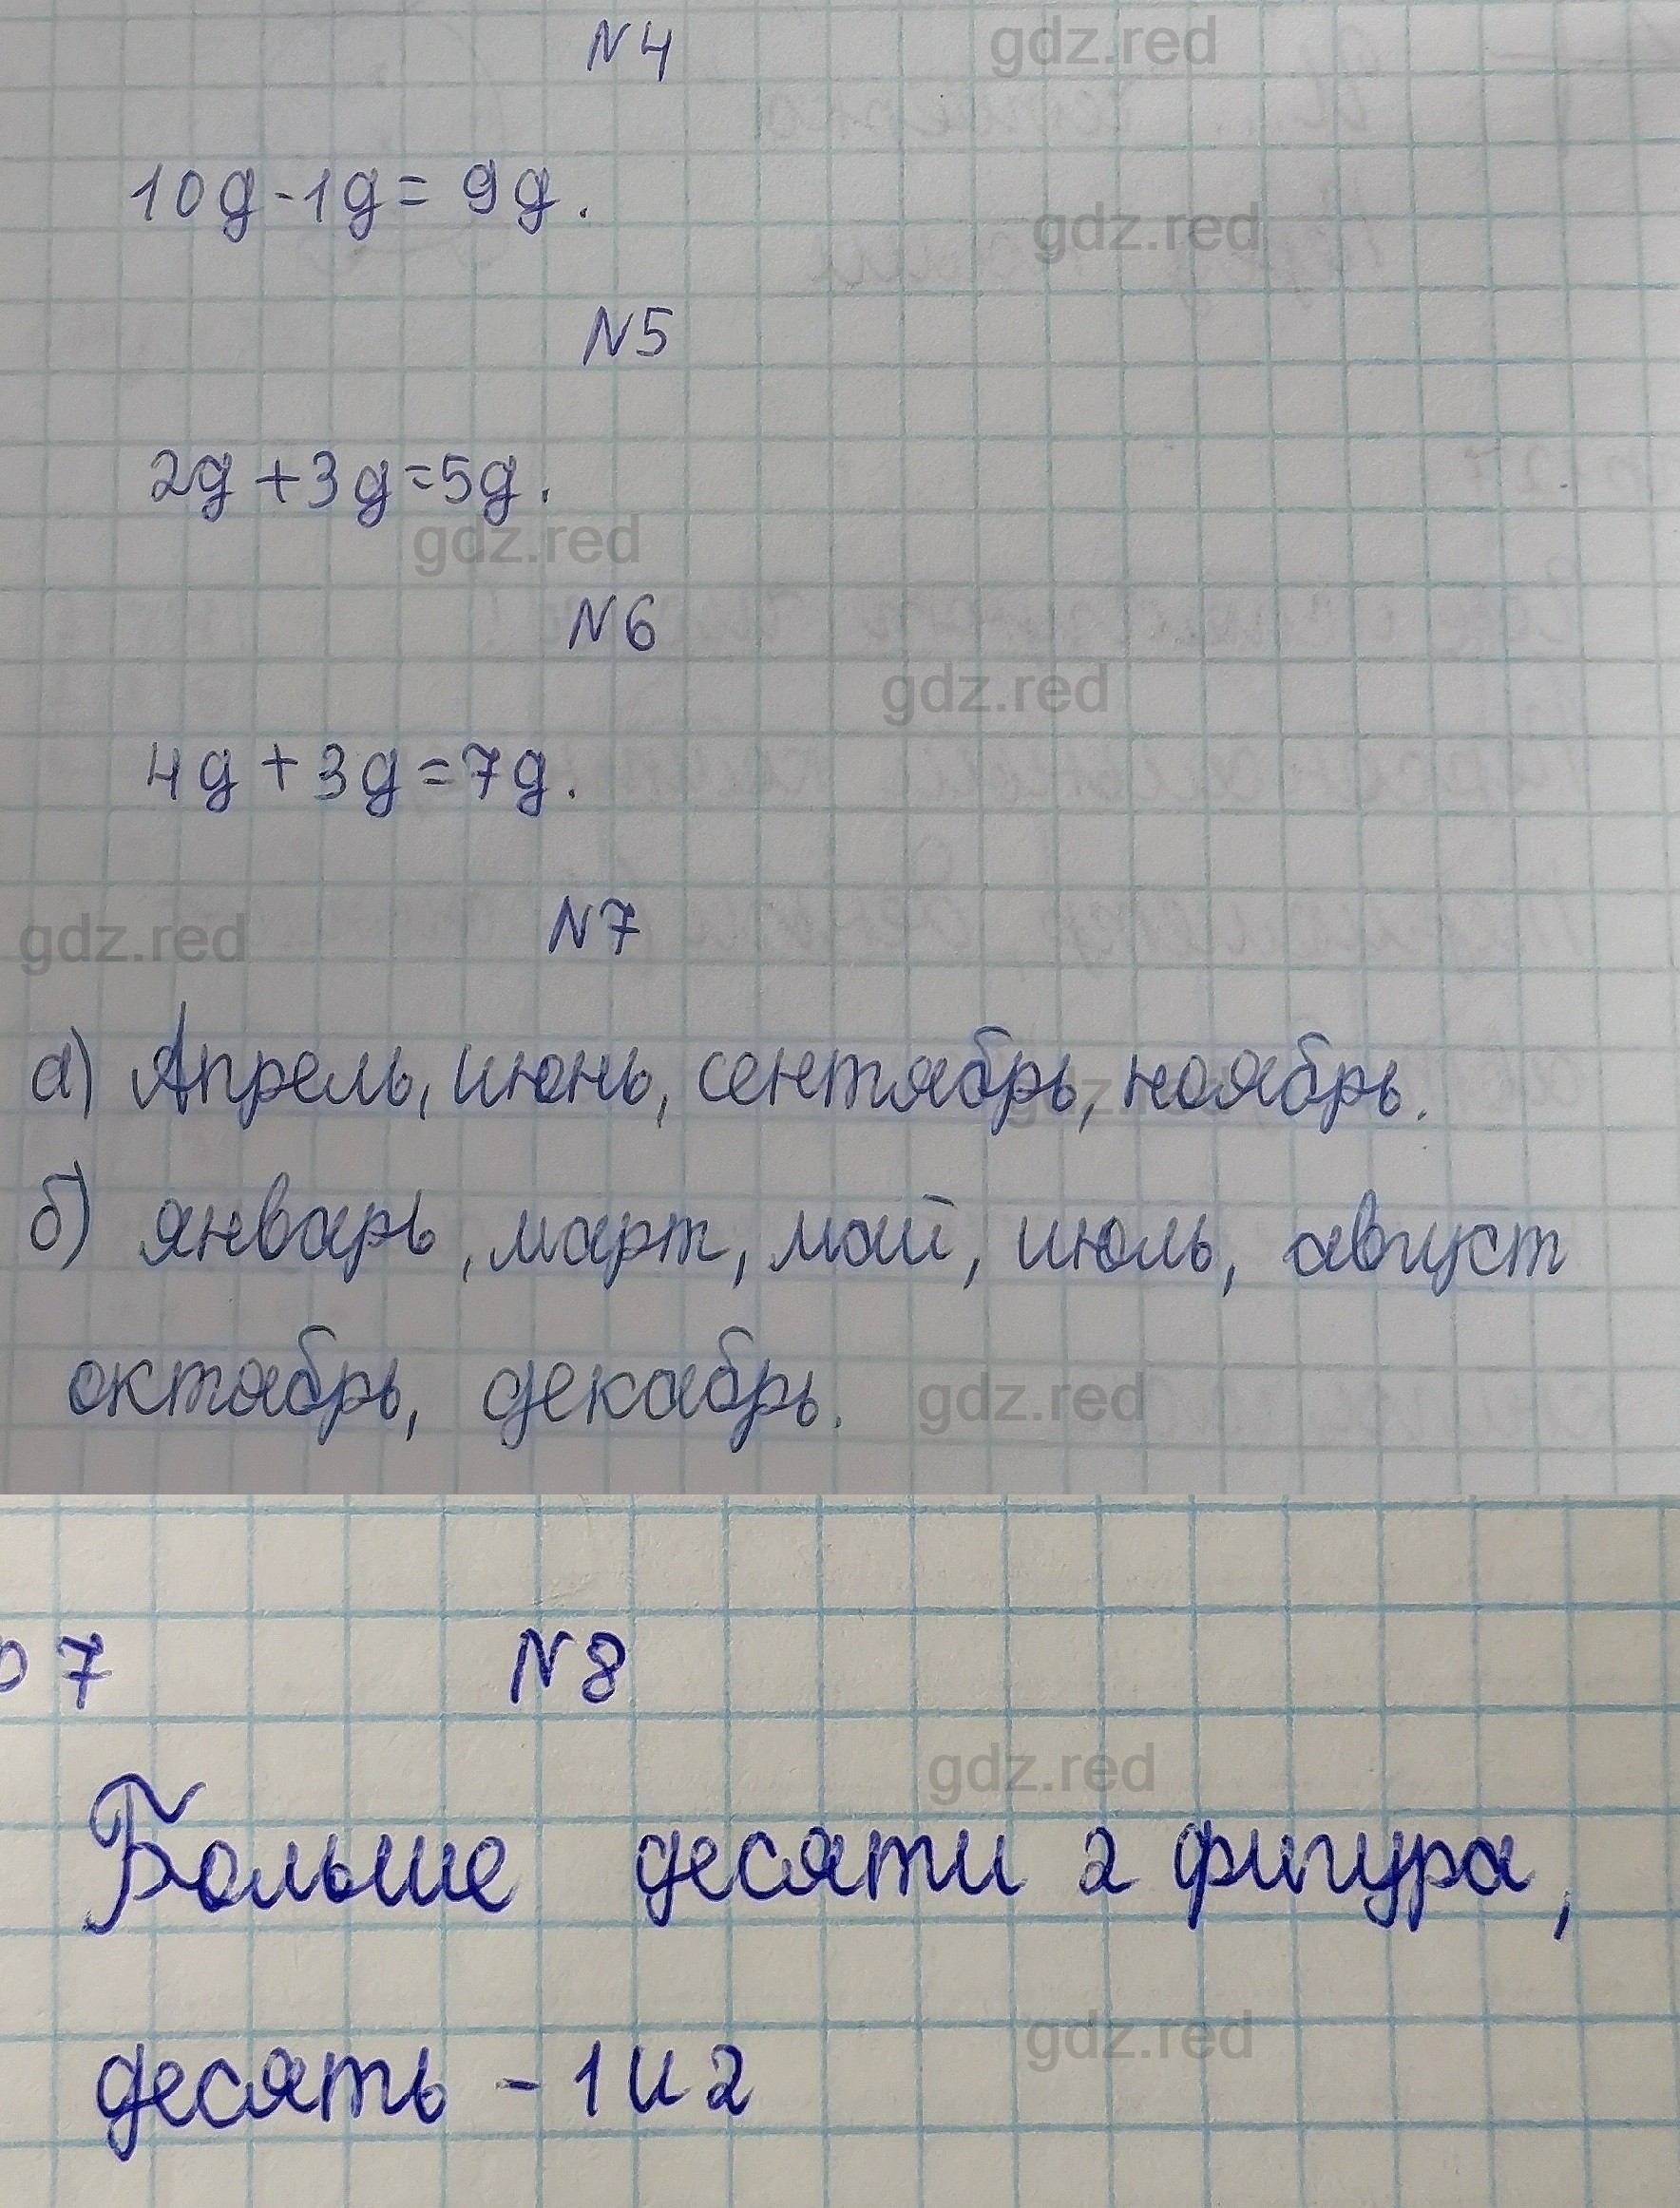 N4
gdz.red
10д-1д= 9д.
gdz.red
N5
2д+3д=5д.
gdz.red
N6
gdz.red
4д+3д=7д.
N7
gdz.red
а) Апрель, июнь, сентябрь, ноябрь.
б) январь, март, май, июль, август
октябрь, декабрь.
gdz.red
7 N8
gdz.red
Больше десяти 2 фигура,
gdz.red
десять - 1 и 2